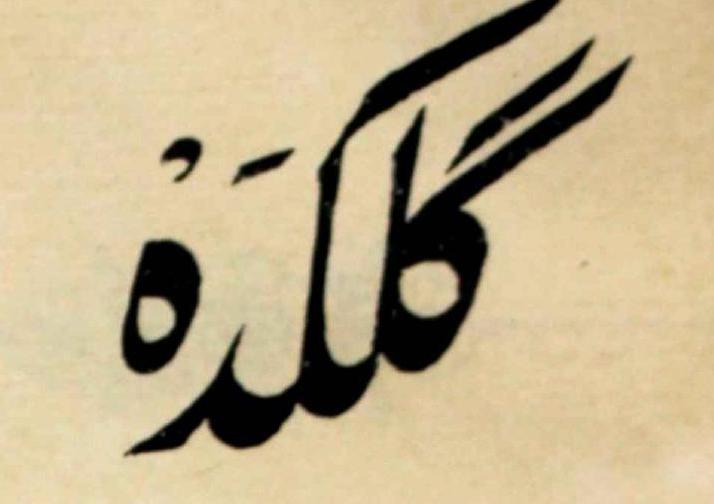 گلکدَهٔ